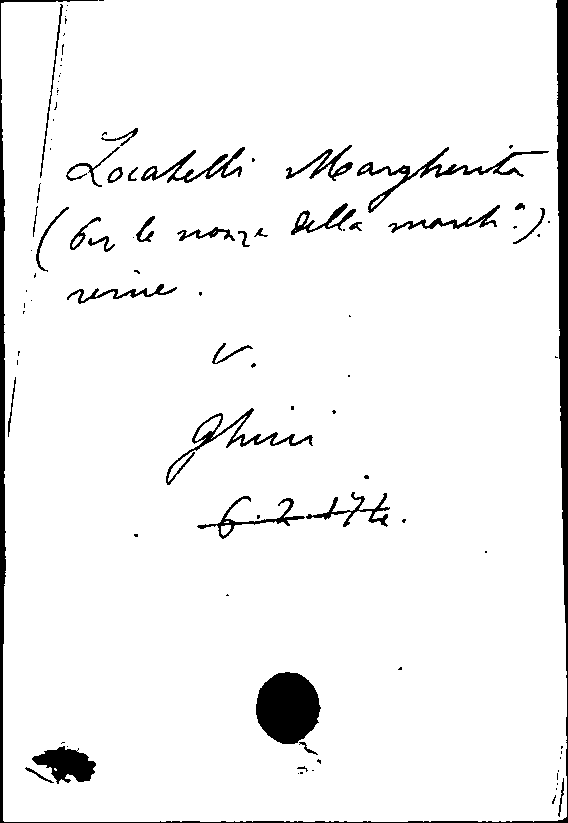 Locatelli Margherita
(Per le nozze della march.a)
rime.
v.
Ghini
6.2.174.